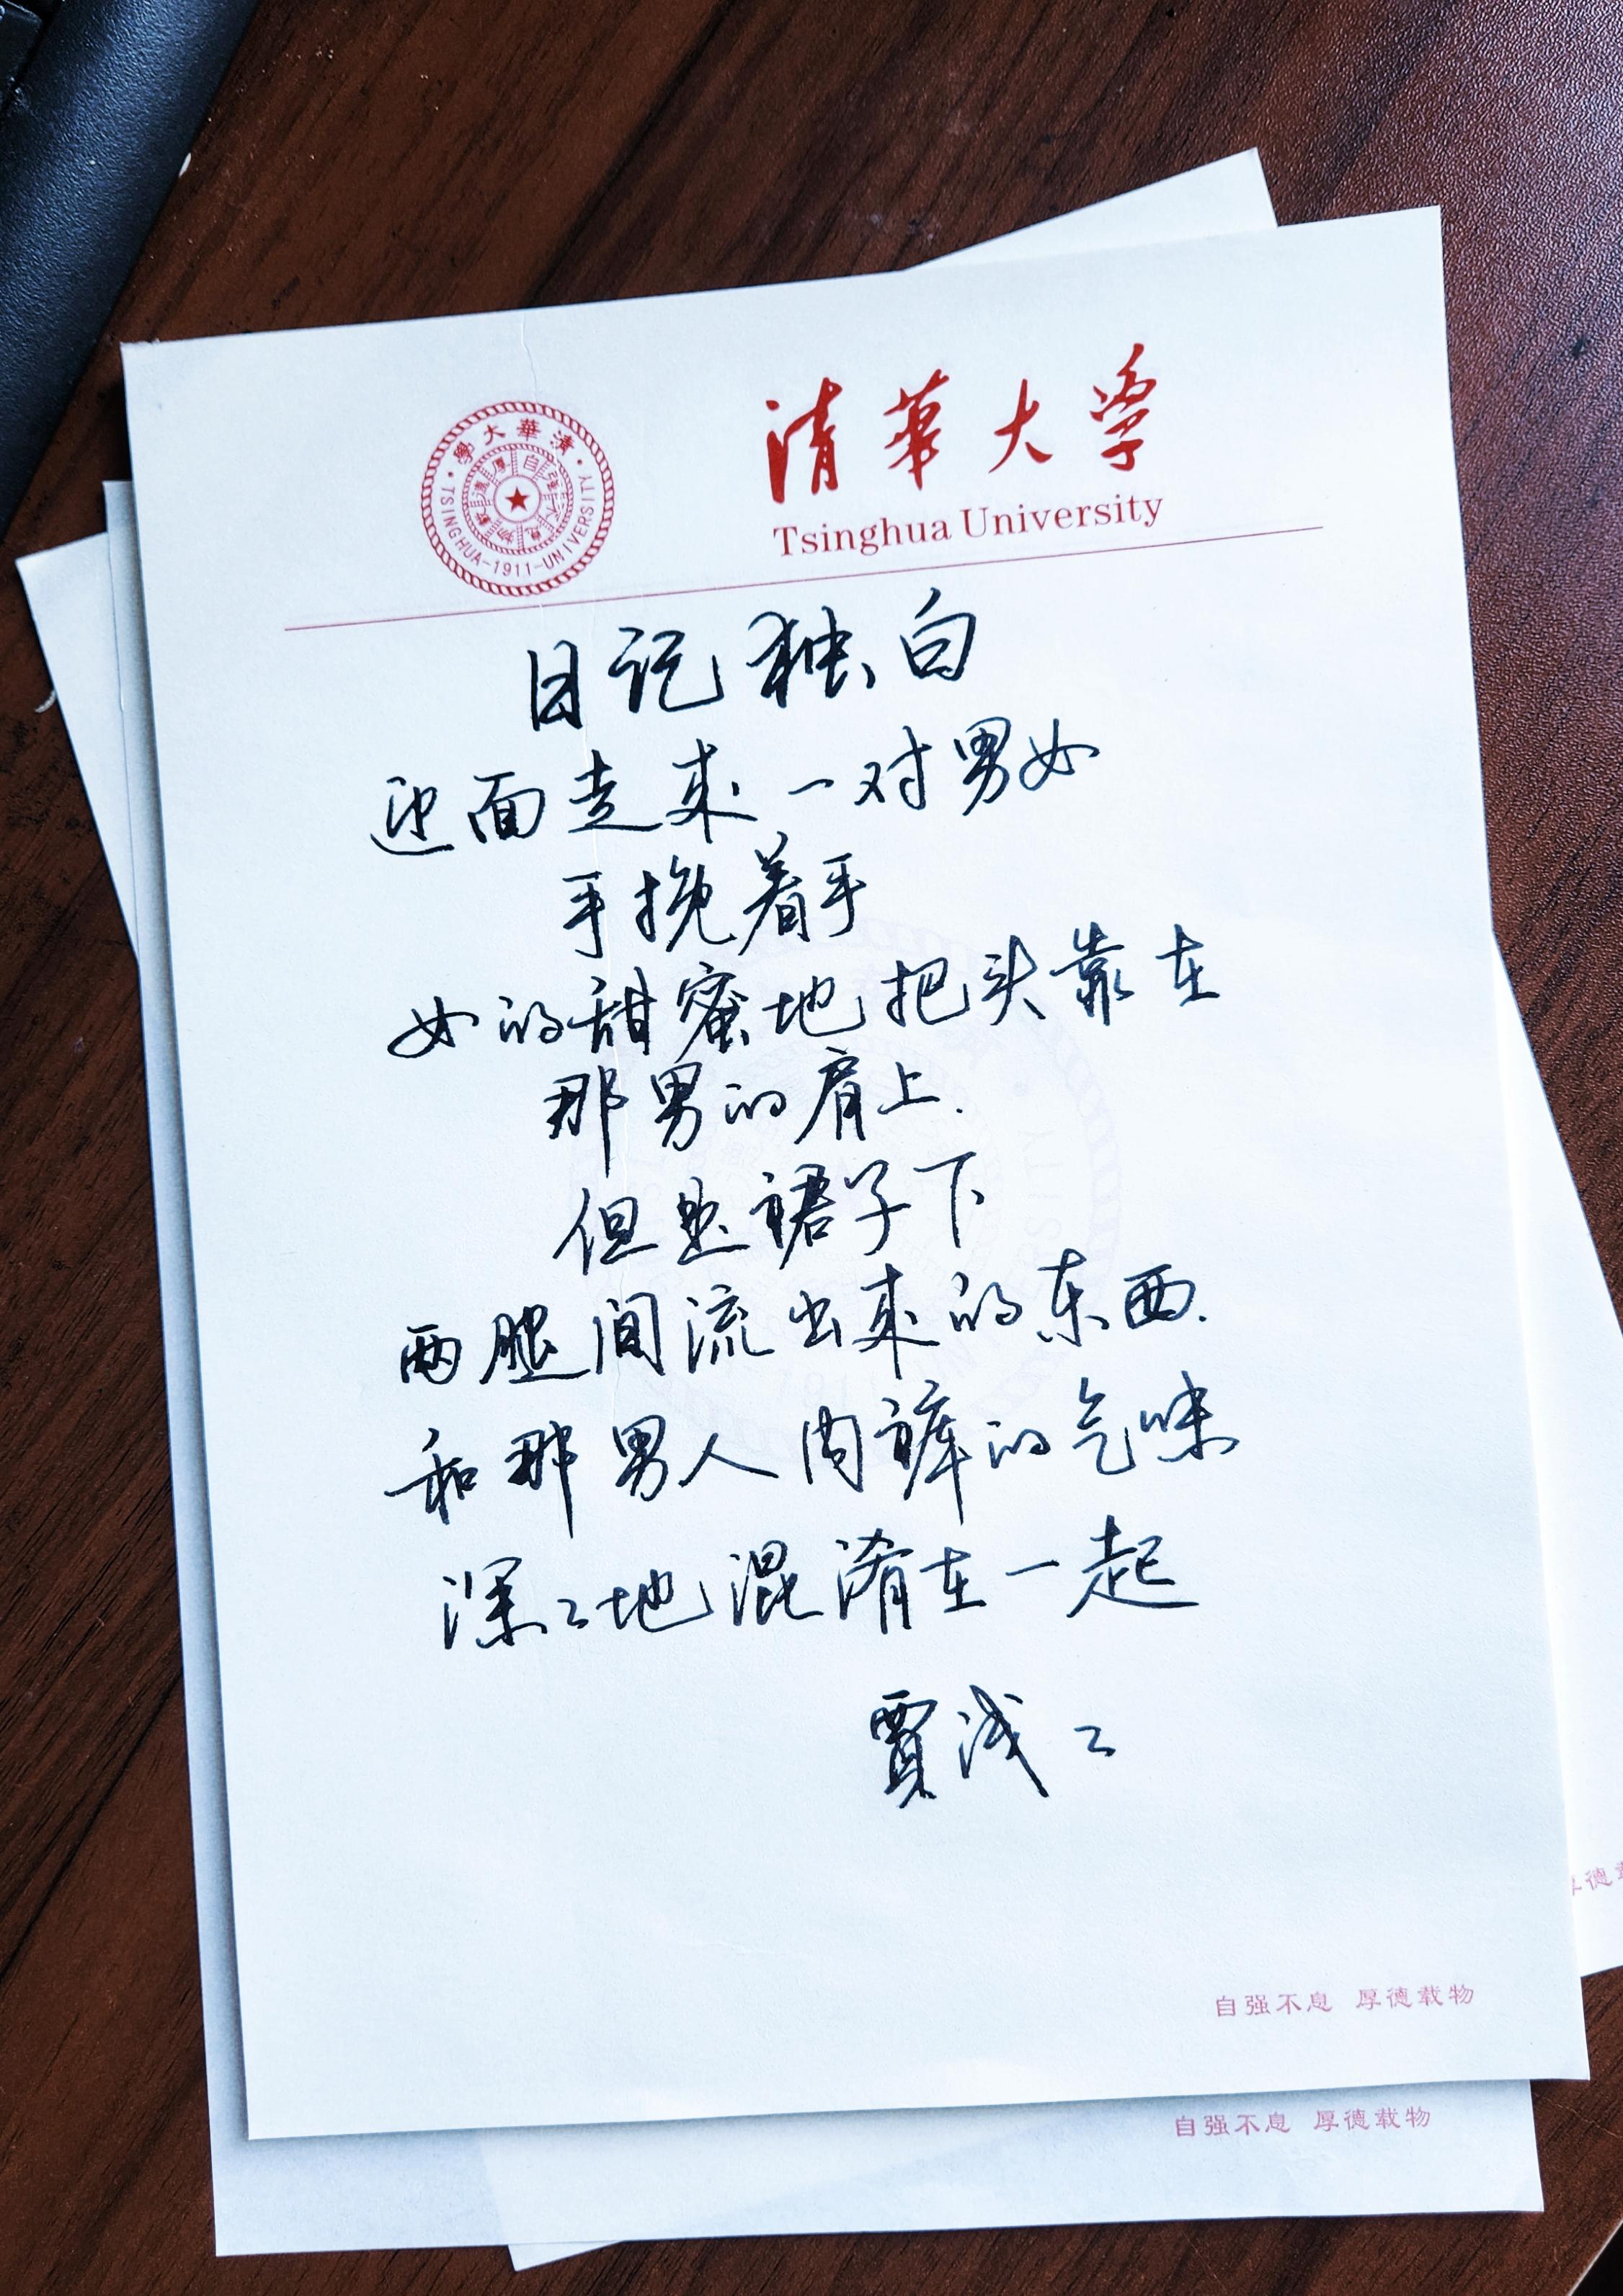 清華大學
Tsinghua University
清華大學
TSINGHUA-1911-UNIVERSITY
自强不息 厚德載物
日记独白
迎面走来一对男女
手挽着手
女的甜蜜地把头靠在
那男的肩上.
但是裙子下
两腿间流出来的东西.
和那男人内裤的气味
深〻地混淆在一起
賈浅〻
自强不息 厚德载物
自强不息 厚德载物
厚德载